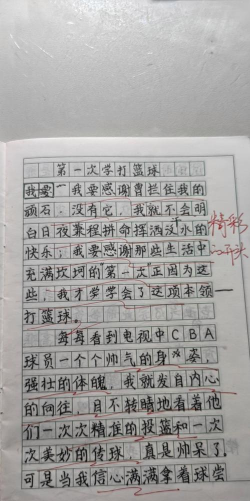 第一次学打篮球
我要我要感谢曾拦住我的
顽石,没有它,我就不会明
白日夜兼程拼命挥洒汉水的
快乐;我要感谢那些生活中
充满坎坷的第一次正因为这
些,我才学学会了这项本领一
打篮球。
每每看到电视中CBA
球员一个个帅气的身姿,
强壮的体魄,我就发自内心
的向往,目不转睛地看着他
们一次次精准的投篮和一次
次美妙的传球,真是帅呆了
可是当我信心满满拿着球尝
精彩
开头